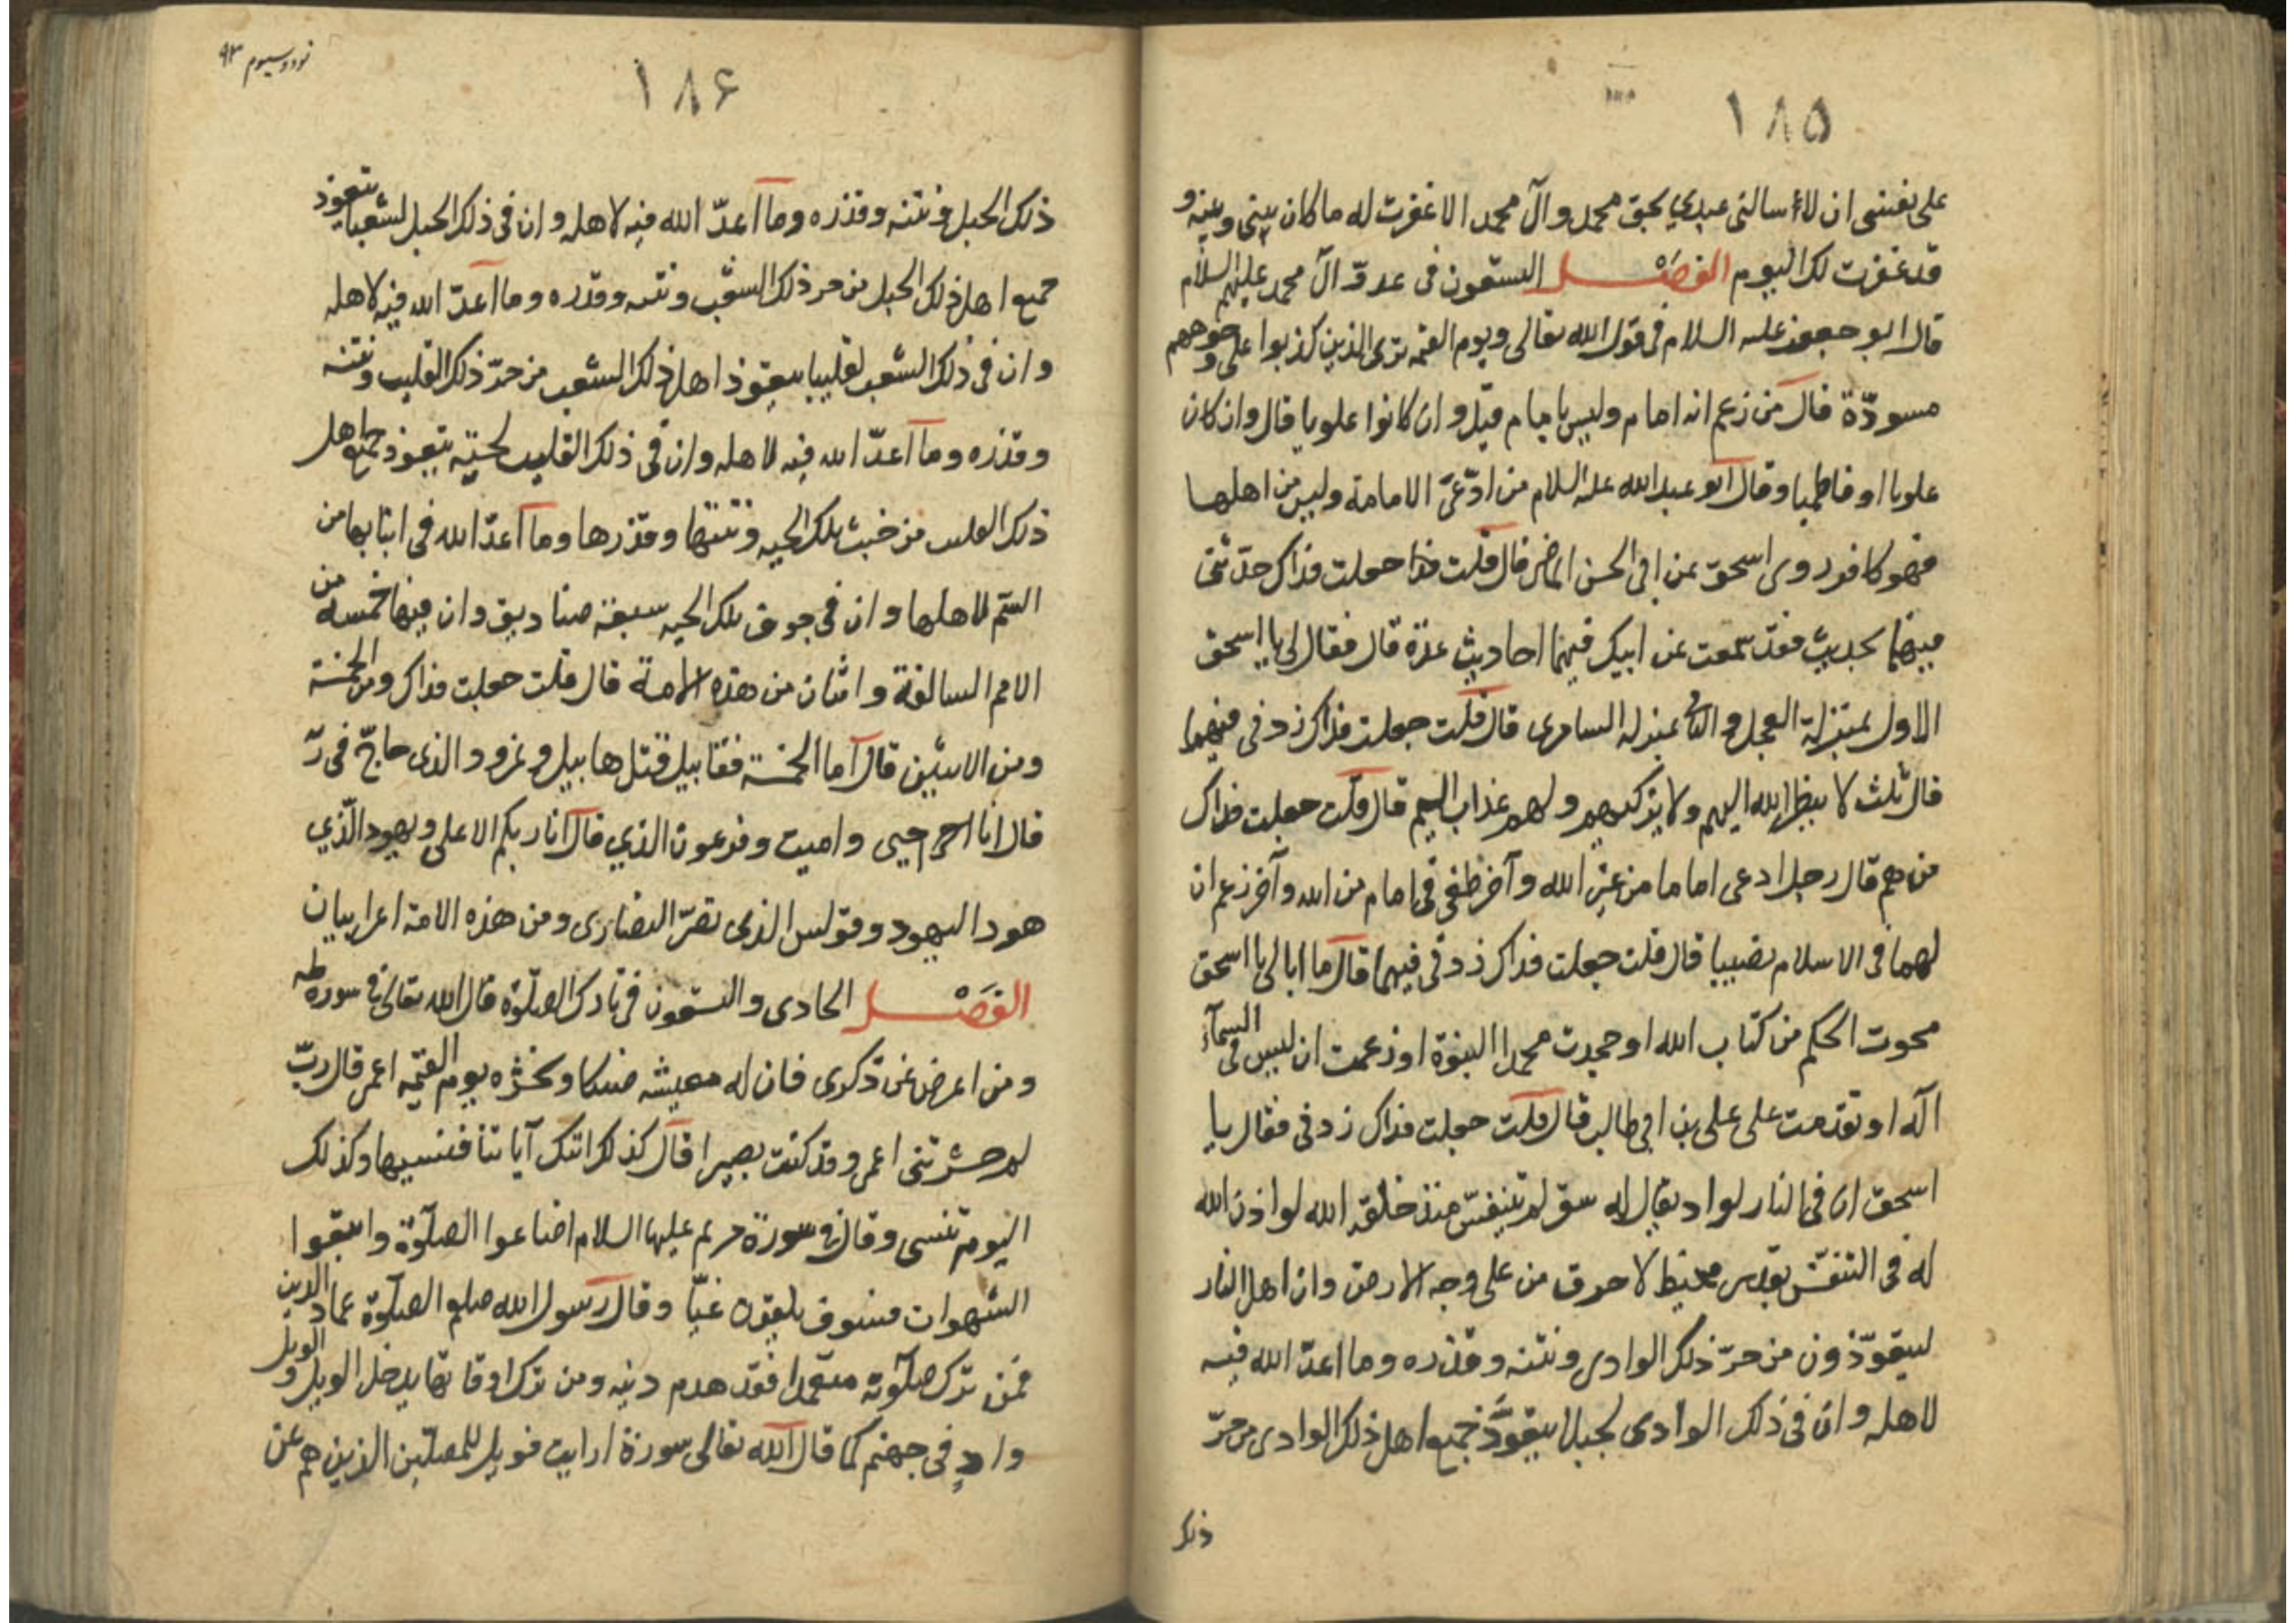 ۱۸۵
على نفسى ان لا يسالنى عبدي بحق محمد وآل محمد الا غفرت له ما كان بينى وبينه و
قد غفرت لك اليوم الفصل التسعون فى عدوّ آل محمد عليهم السلام
قال ابو جعفر عليه السلام فى قول الله تعالى ويوم القيمة ترى الذين كذبوا على وجوههم
مسودّة قال من زعم انه امام وليس بامام قيل وان كانوا علويا قال وان كان
علويا او فاطميا وقال ابو عبد الله عليه السلام من ادّعى الامامة وليس من اهلها
فهو كافر روى اسحق عن ابى الحسن الماضى قال قلت جعلت فداك حدّثنى
فيهما بحديث فقد سمعت عن ابيك فيهما احاديث عدة قال فقال لى يا اسحق
الاول بمنزلة العجل والثانى بمنزله السامرى قال قلت جعلت فداك زدنى فيهما
قال ثلث لا ينظر الله اليهم ولا يزكيهم ولهم عذاب اليم قال قلت جعلت فداك
من هم قال رجل ادعى اماما من غير الله وآخر طغى فى امام من الله وآخر زعم ان
لهما فى الاسلام نصيبا قال قلت جعلت فداك زدنى فيهما قال ما ابالى يا اسحق
محوت الحكم من كتاب الله او جحدت محمدا النبوة او زعمت ان ليس فى السمآء
آله او تقدمت على على بن ابى طالب قال قلت جعلت فداك زدنى فقال يا
اسحق ان فى النار لواد يقال له سقر لم يتنفّس منذ خلقه الله لو اذن الله
له فى التنفّس بقدر مخيط لاحرق من على وجه الارض وان اهل النار
ليتعوّذون من حرّ ذلك الوادى ونتنه وقذره وما اعدّ الله فيه
لاهله وان فى ذلك الوادى لجبلا يتعوّذ جميع اهل ذلك الوادى من حرّ
ذلك
نود وسيوم ۹۳
۱۸۶
ذلك الجبل ونتنه وقذره وما اعدّ الله فيه لاهله وان فى ذلك الجبل لشعبا يتعوذ
جميع اهل ذلك الجبل من حر ذلك الشعب ونتنه وقذره وما اعدّ الله فيه لاهله
وان فى ذلك الشعب لقليبا يتعوذ اهل ذلك الشعب من حرّ ذلك القليب ونتنه
وقذره وما اعدّ الله فيه لاهله وان فى ذلك القليب لحيّه يتعوذ جميع اهل
ذلك القليب من خبث تلك الحيه ونتنها وقذرها وما اعدّ الله فى انيابها من
السّم لاهلها وان فى جوف تلك الحيه سبعة صناديق وان فيها خمسه من
الامم السالفة واثنان من هذه الامة قال قلت جعلت فداك ومن الخمسة
ومن الاثنين قال اما الخمسة فقابيل قتل هابيل ونمرود الذى حاجّ فى ربّه
قال انا احيى واميت وفرعون الذي قال انا ربكم الاعلى ويهود الّذي
هود اليهود وفولس الذى نصّر النصارى ومن هذه الامة اعرابيان
الفصل الحادى والتسعون فى تارك الصلوة قال الله تعالى فى سوره طه
ومن اعرض عن ذكرى فان له معيشه ضنكا ونحشره يوم القيمه اعمى قال ربّ
لم حشرتنى اعمى وقد كنت بصيرا قال كذلك اتتك آياتنا فنسيها وكذلك
اليوم تنسى وقال فى سورة مريم عليها السلام اضاعوا الصلوة واتبعوا
الشهوات فسوف يلقون غيّا وقال رسول الله صلعم الصلوة عماد الدين
فمن ترك صلوته متعمدا فقد هدم دينه ومن ترك اوقاتها يدخل الويل والويل
واد فى جهنم كما قال الله تعالى سورة ارايت فويل للمصلّين الذين هم عن